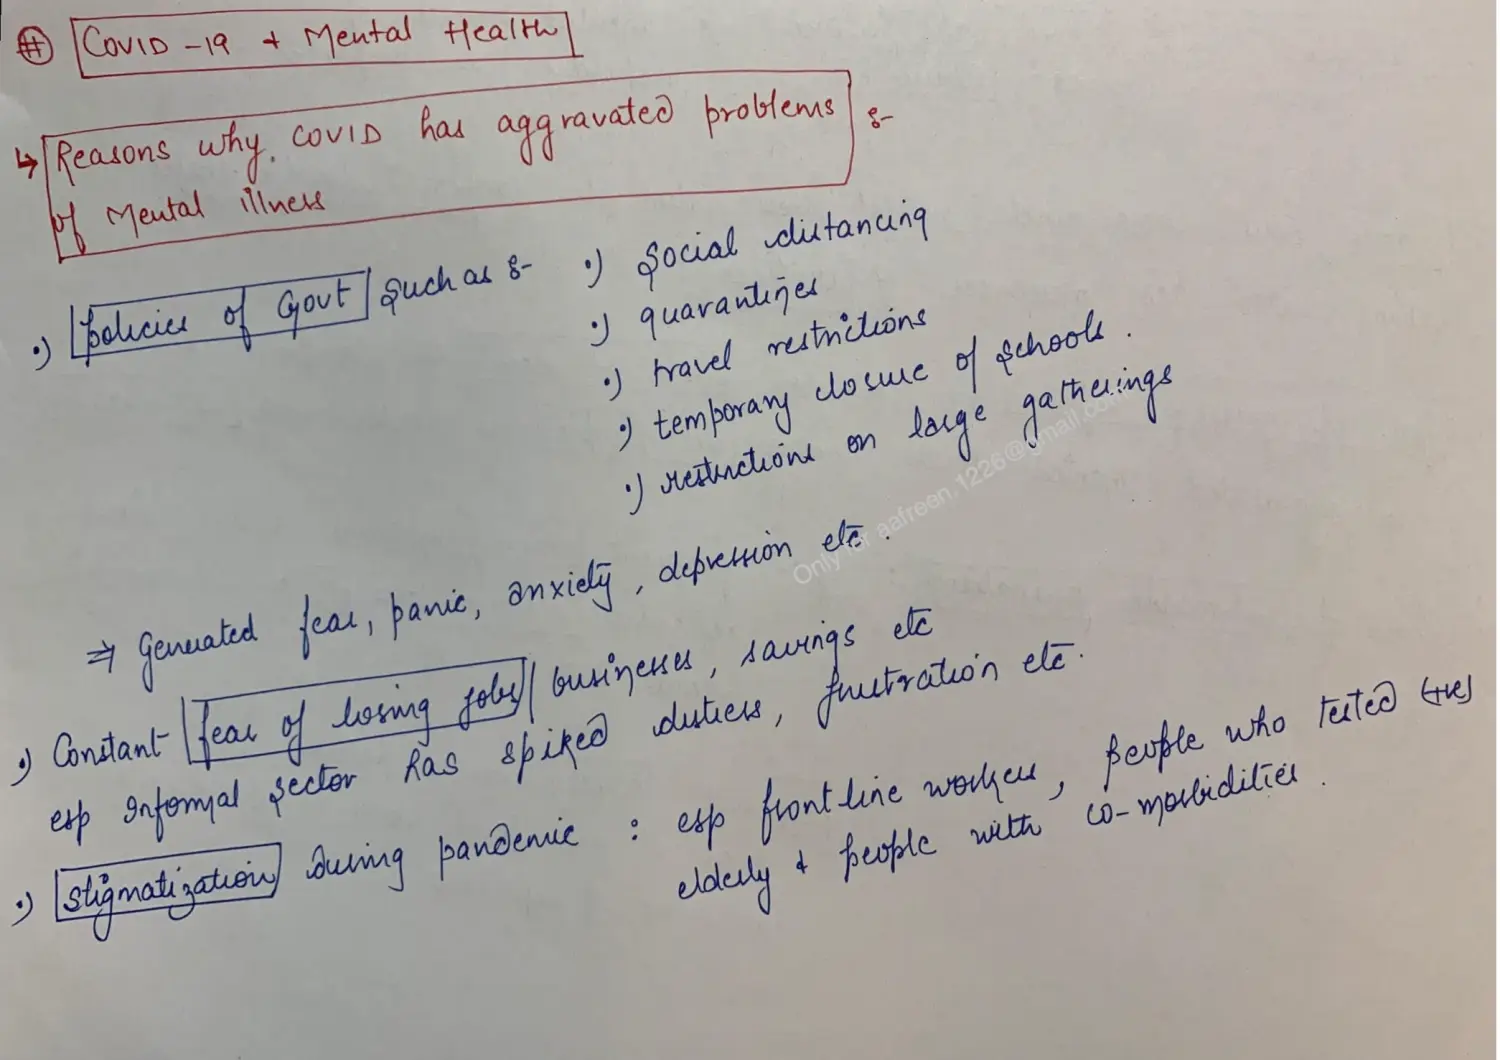 # COVID-19 + Mental Health
↳ Reasons why COVID has aggravated problems :-
of Mental illness
•) Policies of Govt such as :- •) Social distancing
•) quarantines
•) travel restrictions
•) temporary closure of schools.
•) restrictions on large gatherings
Only for aafreen.1226@gmail.com
⇒ Generated fear, panic, anxiety, depression etc.
•) Constant fear of losing jobs businesses, savings etc
esp informal sector has spiked distress, frustration etc.
•) Stigmatization during pandemic : esp frontline workers, people who tested (+ve)
elderly + people with co-morbidities.